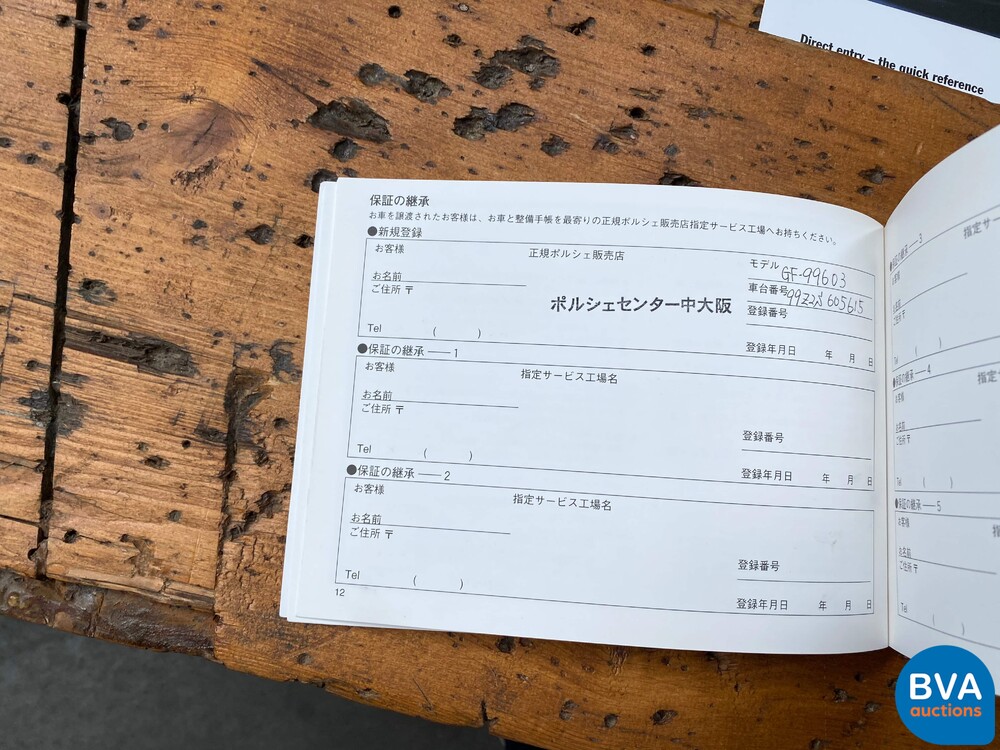 Direct entry – the quick reference
保証の継承
お車を譲渡されたお客様は、お車と整備手帳を最寄りの正規ポルシェ販売店指定サービス工場へお持ちください。
●新規登録
お客様
正規ポルシェ販売店
モデル GF-99603
お名前
ご住所 〒
車台番号
605615
ポルシェセンター中大阪
登録番号
Tel ( )
登録年月日 年 月 日
●保証の継承 ── 1
お客様
指定サービス工場名
お名前
ご住所 〒
登録番号
Tel ( )
登録年月日 年 月 日
●保証の継承 ── 2
お客様
指定サービス工場名
お名前
ご住所 〒
登録番号
Tel ( )
登録年月日 年 月 日
12
●保証の継承 ── 3
指定サー
お客様
お名前
ご住所 〒
Tel ( )
●保証の継承 ── 4
指定
お客様
お名前
ご住所 〒
Tel ( )
●保証の継承 ── 5
お客様
お名前
ご住所 〒
Tel ( )
BVA
auctions